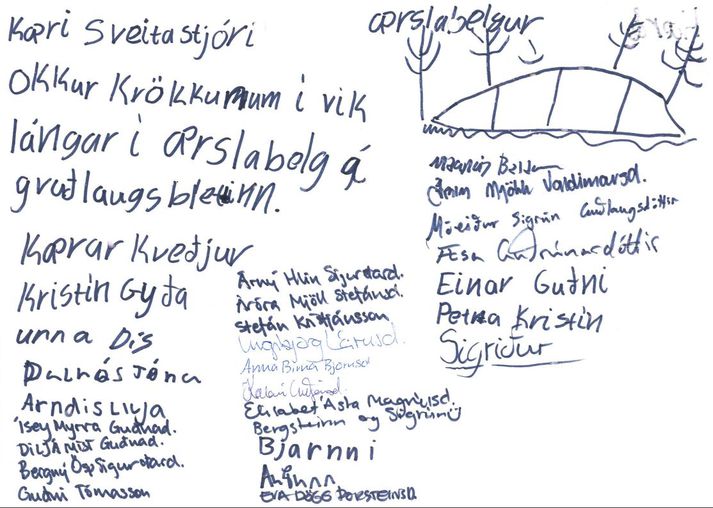 Kæri Sveitastjóri
Okkur Krökkunum í vik
lángar í ærslabelg á
guðlaugsblettinn.
Kærar Kveðjur
Kristín Gyða
unna Dís
Arndis Lilja
Ísey Myrra Guðnad.
DILJÁ MIST Guðnad.
Bergný Ösp Sigurðard.
Guðni Tómasson
Árný Hlín Sigurðard.
Aróra Mjöll Stefánsd.
Stefán Kristjánsson
Ingibjörg Lárusd.
Anna Birna Björnsd
Elísabet Ásta Magnúsd.
Bergsteinn og Sigrún
Bjarnni
EVA DÖGG ÞORSTEINSD
ærslabelgur
Mjöll Valdimarsd.
Sigrún Guðlaugsdóttir
Æsa Guðrúnardóttir
Einar Guðni
Petra Kristín
Sigríður